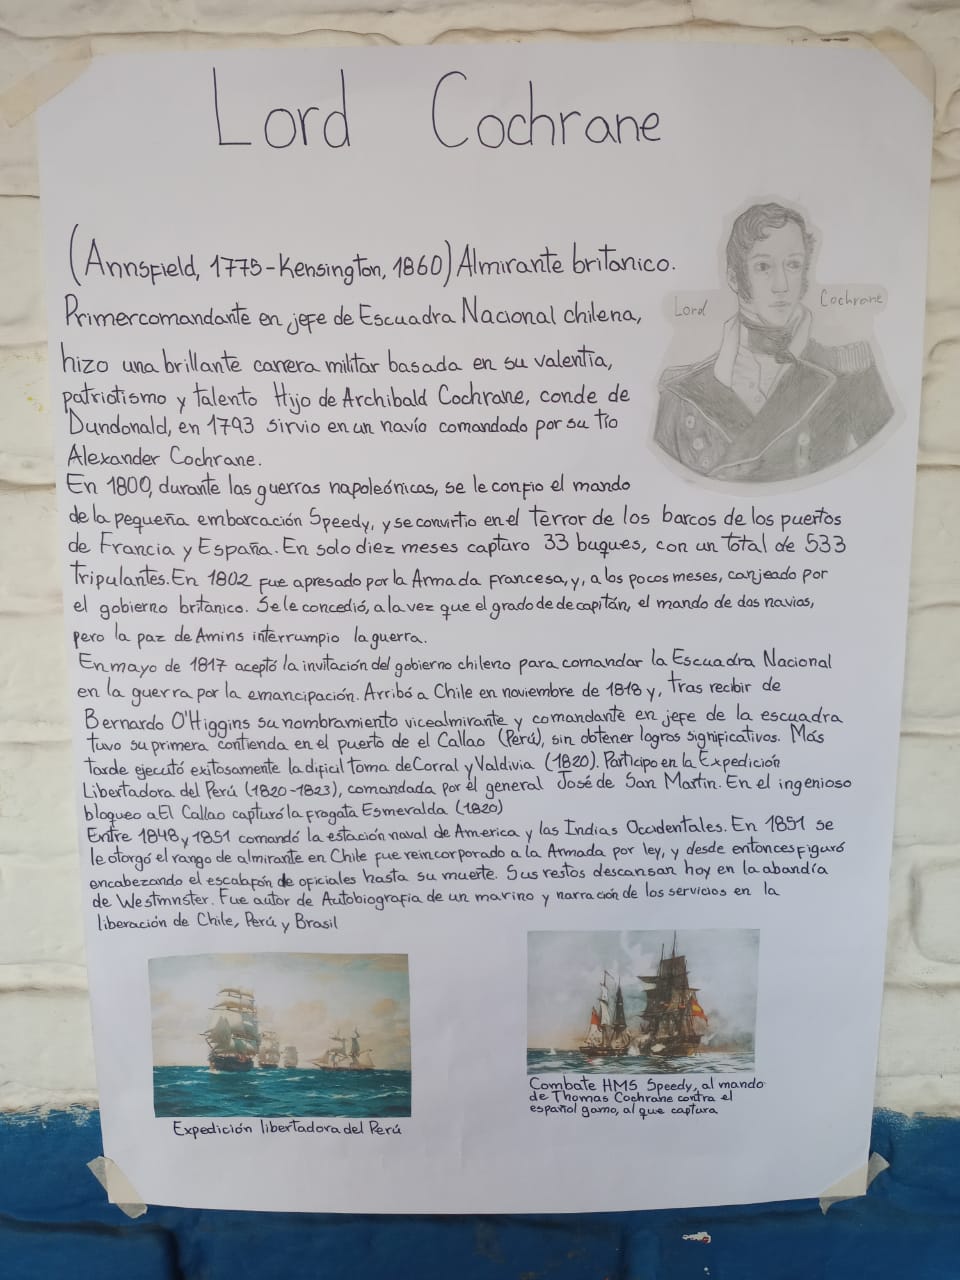 Lord Cochrane
(Annsfield, 1775-Kensington, 1860) Almirante britanico.
Primer comandante en jefe de Escuadra Nacional chilena,
Lord Cochrane
hizo una brillante carrera militar basada en su valentia,
patriotismo y talento Hijo de Archibald Cochrane, conde de
Dundonald, en 1793 sirvio en un navío comandado por su tío
Alexander Cochrane.
En 1800, durante las guerras napoleónicas, se le confio el mando
de la pequeña embarcación Speedy, y se convirtio en el terror de los barcos de los puertos
de Francia y España. En solo diez meses capturo 33 buques, con un total de 533
tripulantes. En 1802 fue apresado por la Armada francesa, y, a los pocos meses, canjeado por
el gobierno britanico. Se le concedió, a la vez que el grado de de capitán, el mando de dos navios,
pero la paz de Amins interrumpio la guerra.
En mayo de 1817 aceptó la invitación del gobierno chileno para comandar la Escuadra Nacional
en la guerra por la emancipación. Arribó a Chile en noviembre de 1818 y, tras recibir de
Bernardo O'Higgins su nombramiento vicealmirante y comandante en jefe de la escuadra
tuvo su primera contienda en el puerto de el Callao (Perú), sin obtener logros significativos. Más
tarde ejecutó exitosamente la dificil toma de Corral y Valdivia (1820). Participo en la Expedición
Libertadora del Perú (1820-1823), comandada por el general José de San Martin. En el ingenioso
bloqueo a El Callao capturó la fragata Esmeralda (1820)
Entre 1848 y 1851 comandó la estación naval de America y las Indias Occidentales. En 1851 se
le otorgó el rango de almirante en Chile fue reincorporado a la Armada por ley, y desde entonces figuró
encabezando el escalafón de oficiales hasta su muerte. Sus restos descansan hoy en la abandía
de Westmnster. Fue autor de Autobiografia de un marino y narración de los servicios en la
liberación de Chile, Perú y Brasil
Expedición libertadora del Perú
Combate HMS Speedy, al mando
de Thomas Cochrane contra el
español gamo, al que captura